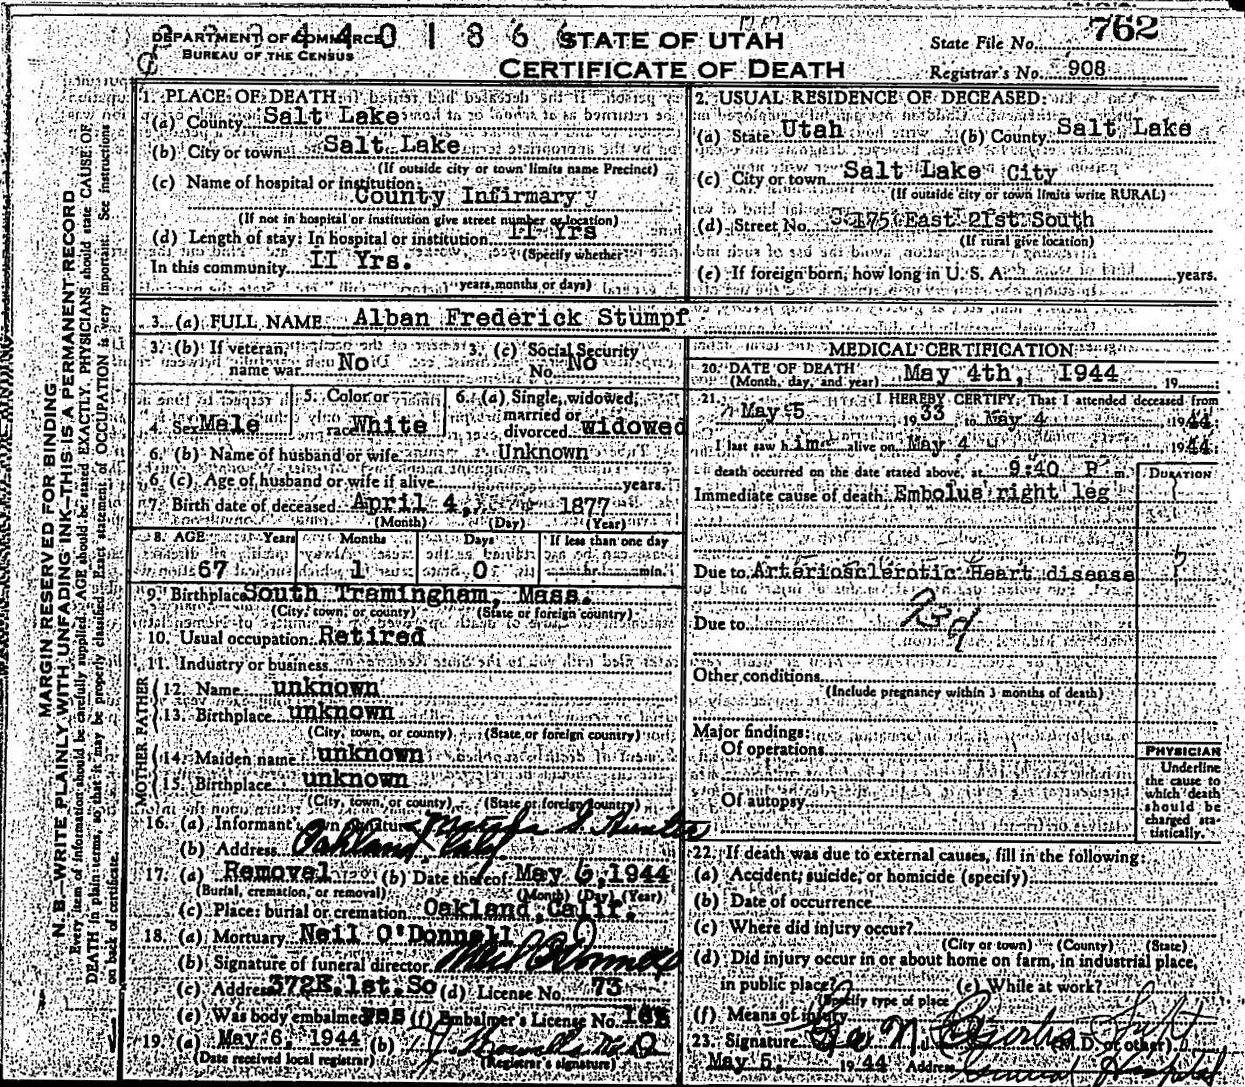 DEPARTMENT OF COMMERCE
BUREAU OF THE CENSUS
STATE OF UTAH
CERTIFICATE OF DEATH
State File No. 762
Registrar's No. 908
MARGIN RESERVED FOR BINDING
N. B.—WRITE PLAINLY WITH UNFADING INK—THIS IS A PERMANENT RECORD
Every item of information should be carefully supplied. AGE should be stated EXACTLY. PHYSICIANS should state CAUSE OF
DEATH in plain terms, so that it may be properly classified. Exact statement of OCCUPATION is very important. See instructions
on back of certificate.
1. PLACE OF DEATH:
(a) County Salt Lake
(b) City or town Salt Lake
(If outside city or town limits name Precinct)
(c) Name of hospital or institution:
County Infirmary
(If not in hospital or institution give street number or location)
(d) Length of stay: In hospital or institution II Yrs
(Specify whether
In this community II Yrs.
years, months or days)
2. USUAL RESIDENCE OF DECEASED:
(a) State Utah (b) County Salt Lake
(c) City or town Salt Lake City
(If outside city or town limits write RURAL)
(d) Street No. 175 East 21st South
(If rural give location)
(e) If foreign born, how long in U. S. A. years.
3. (a) FULL NAME Alban Frederick Stumpf
3. (b) If veteran, name war No
3. (c) Social Security No. No
4. Sex Male
5. Color or race White
6. (a) Single, widowed, married or divorced widowed
6. (b) Name of husband or wife Unknown
6. (c) Age of husband or wife if alive years.
7. Birth date of deceased April 4, 1877
(Month) (Day) (Year)
8. AGE Years Months Days If less than one day
67 1 0 hr. min.
9. Birthplace South Tramingham, Mass.
(City, town, or county) (State or foreign country)
10. Usual occupation Retired
11. Industry or business
FATHER
12. Name unknown
13. Birthplace unknown
(City, town, or county) (State or foreign country)
MOTHER
14. Maiden name unknown
15. Birthplace unknown
(City, town, or county) (State or foreign country)
16. (a) Informant's own signature S. Hunter
(b) Address Oakland, Calif
17. (a) Removal (b) Date thereof May 6, 1944
(Burial, cremation, or removal) (Month) (Day) (Year)
(c) Place: burial or cremation Oakland, Calif.
18. (a) Mortuary Neil O'Donnell
(b) Signature of funeral director Neil O'Donnell
(c) Address 372E. 1st. So (d) License No. 73
(e) Was body embalmed yes (f) Embalmer's License No.
19. (a) May 6, 1944 (b)
(Date received local registrar) (Registrar's signature)
MEDICAL CERTIFICATION
20. DATE OF DEATH
(Month, day, and year) May 4th, 1944 19
21. I HEREBY CERTIFY, That I attended deceased from
May 5 1933 to May 4 1944
I last saw him alive on May 4 1944
death occurred on the date stated above, at 9:40 P m.
DURATION
Immediate cause of death Embolus right leg
Due to Arteriosclerotic Heart disease
Due to
Other conditions
(Include pregnancy within 3 months of death)
Major findings:
Of operations
Of autopsy
PHYSICIAN
Underline
the cause to
which death
should be
charged sta-
tistically.
22. If death was due to external causes, fill in the following:
(a) Accident, suicide, or homicide (specify)
(b) Date of occurrence
(c) Where did injury occur?
(City or town) (County) (State)
(d) Did injury occur in or about home on farm, in industrial place,
in public place? (e) While at work?
(Specify type of place
(f) Means of injury
23. Signature (M.D. or other)
May 5, 1944 Address General Hospital